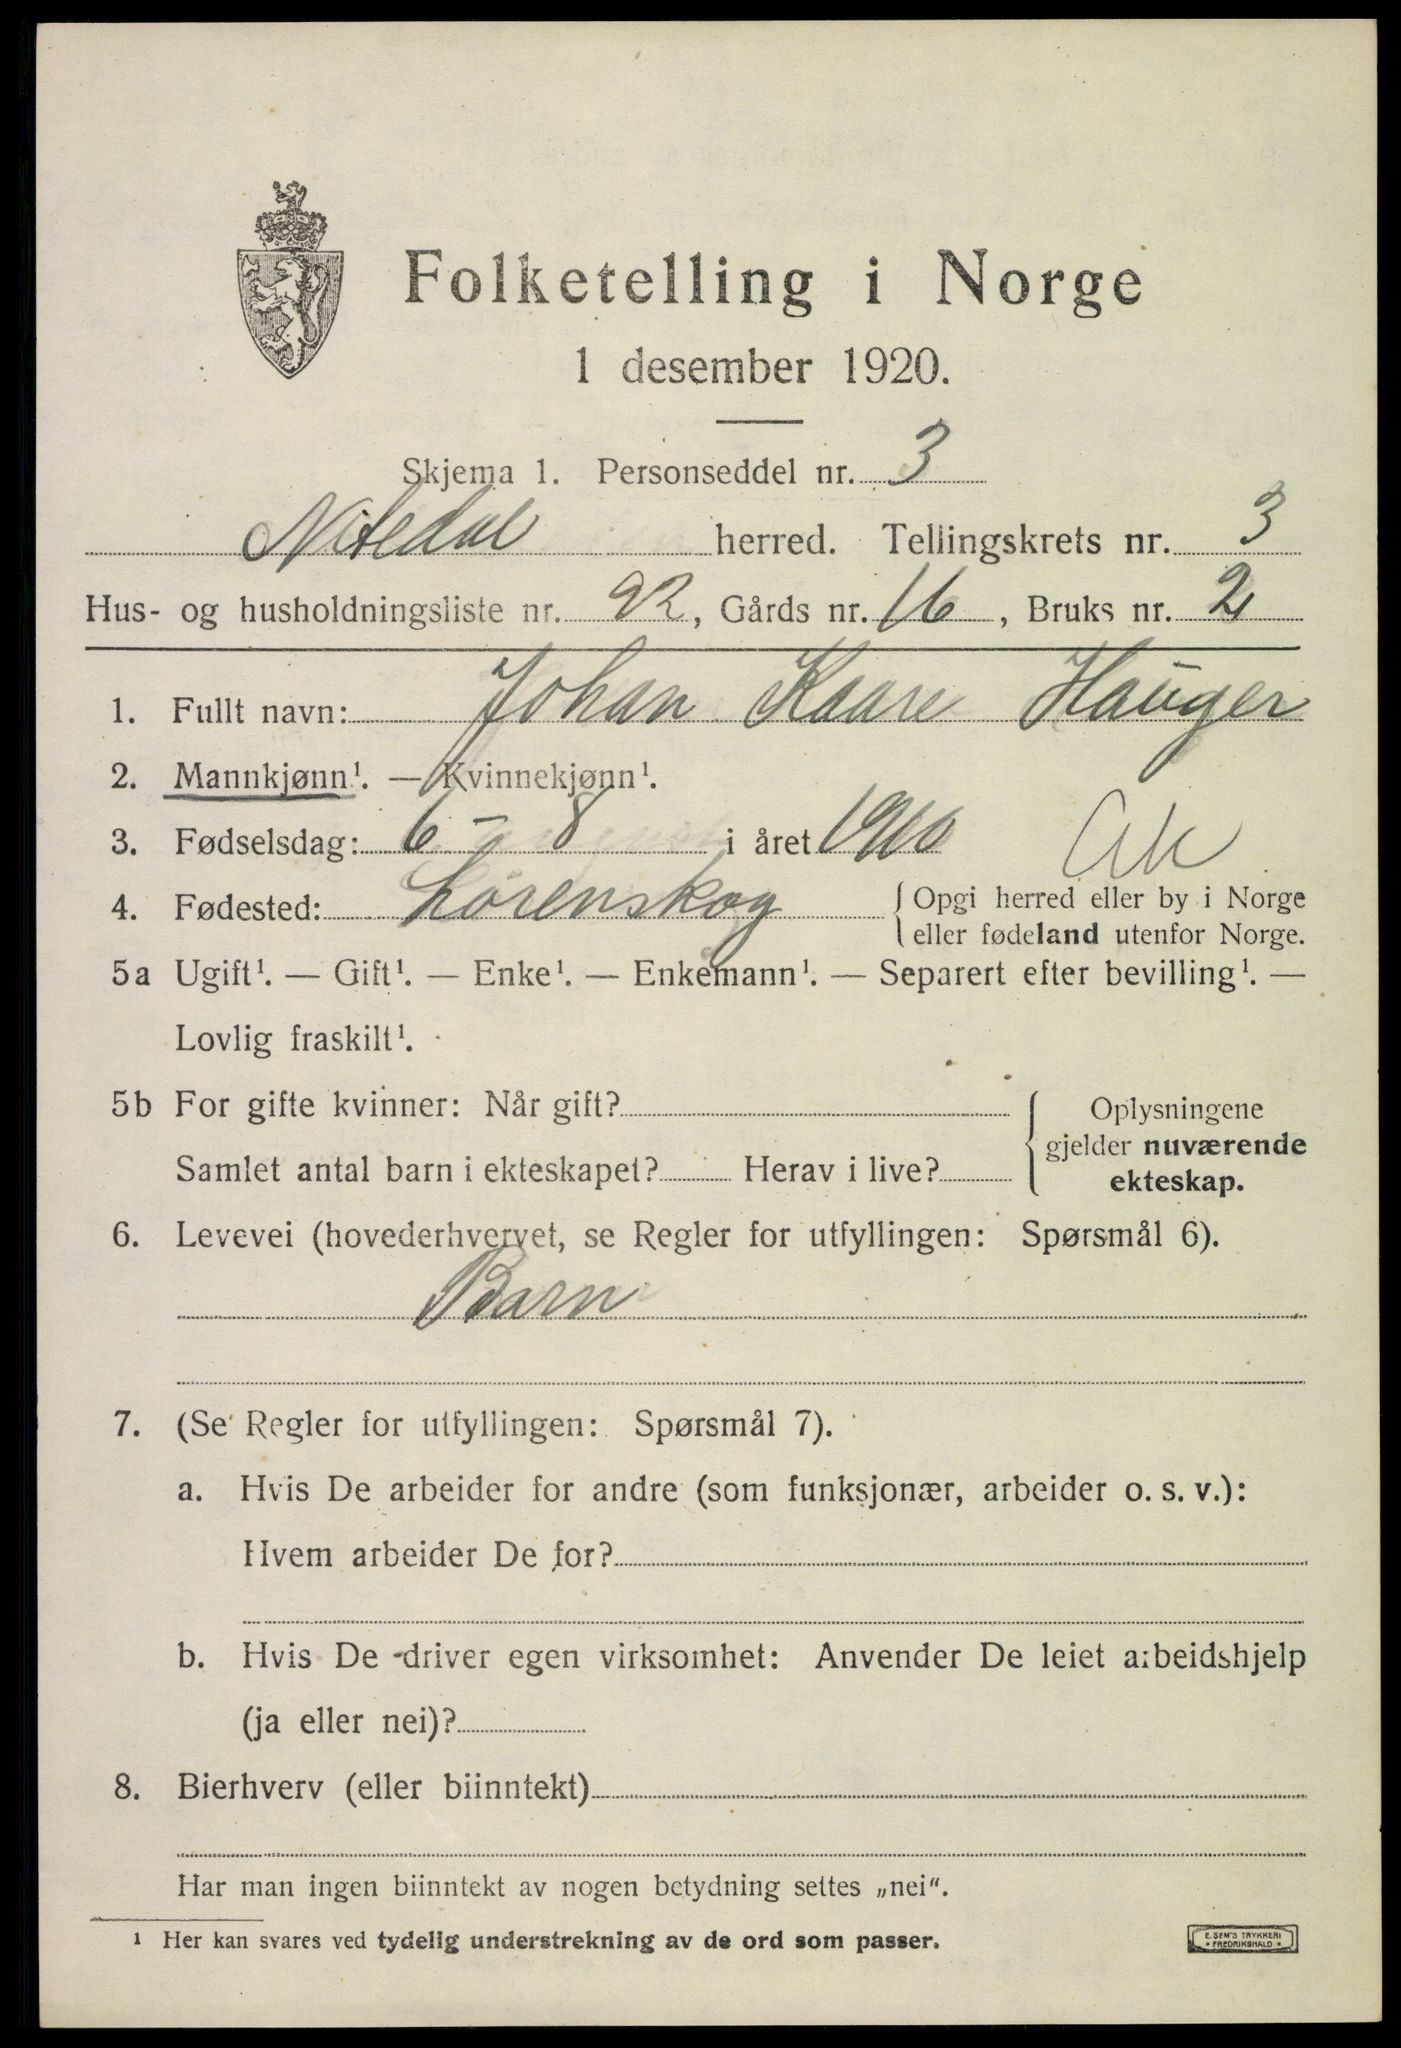 Folketelling i Norge
1 desember 1920.
Skjema 1. Personseddel nr. 3
Nitedal herred. Tellingskrets nr. 3
Hus- og husholdningsliste nr. 22, Gårds nr. 16, Bruks nr. 2
1. Fullt navn: Johan Kaare Hauger
2. Mannkjønn¹. — Kvinnekjønn¹.
3. Fødselsdag: 6 - 8 i året 1910
Ak
4. Fødested: Lørenskog { Opgi herred eller by i Norge
eller fødeland utenfor Norge.
5a Ugift¹. — Gift¹. — Enke¹. — Enkemann¹. — Separert efter bevilling¹. —
Lovlig fraskilt¹.
5b For gifte kvinner: Når gift? { Oplysningene
gjelder nuværende
Samlet antal barn i ekteskapet? Herav i live? ekteskap.
6. Levevei (hovederhvervet, se Regler for utfyllingen: Spørsmål 6).
Barn
7. (Se Regler for utfyllingen: Spørsmål 7).
a. Hvis De arbeider for andre (som funksjonær, arbeider o. s. v.):
Hvem arbeider De for?
b. Hvis De driver egen virksomhet: Anvender De leiet arbeidshjelp
(ja eller nei)?
8. Bierhverv (eller biinntekt)
Har man ingen biinntekt av nogen betydning settes „nei“.
¹ Her kan svares ved tydelig understrekning av de ord som passer.
E. SEM'S TRYKKERI
• FREDRIKSHALD •